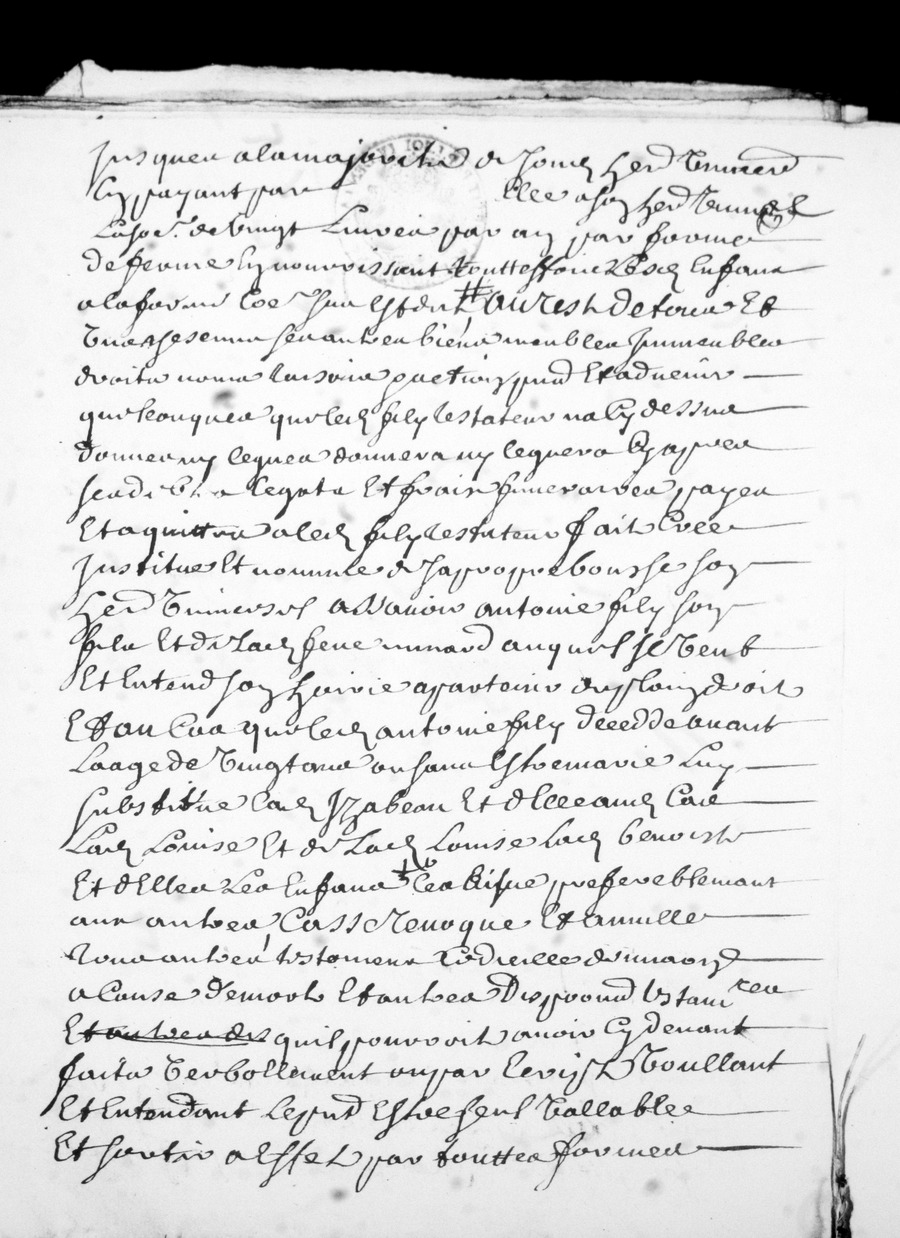 Jusques a la majorite de sond herd universel
En payant par elle a son herd universel
La som.e de vingt Livres par an par forme
de ferme En nourrissant touttessfois Lesd Enfans
a la forme # Au rest de tous Et
Uns chescuns ses autres biens meubles Jmmeubles
droits noms raisons & actions pnts Et advenir
quelconques que led fily testateur na Cy dessus
donnes ny legues donnera ny leguera Cy apres
ses debtes legats Et frais funeraires payes
Et aquittes a led fily testateur fait Cree
Jnstitue Et nomme de sa propre bouche son
herd Universel a scavoir antoine fily son
fils Et de Lad feue munard auquel Jl veut
Et Entend son hoirie apartenir de plain droit
Et au Cas que led antoine fily decedde avant
Laage de vingt ans ou sans Estre marie Luy
substitue Lad Jzabeau Et d'Elle and Cas
Lad Louise Et de Lad Louise lad benoiste
Et d'Elles Les Enfans preferablemant
aux autres, Casse Revoque Et annulle
Tous autres testomens Codicilles donnaons
a Cause de mort Et autres Dispoons testam.res
quil pourroit avoir Cy devant
faits Verbollement ou par Escrit Voullant
Et Entendant Le pnt Estre seul Vallable
Et sortir a Effet par touttes formes